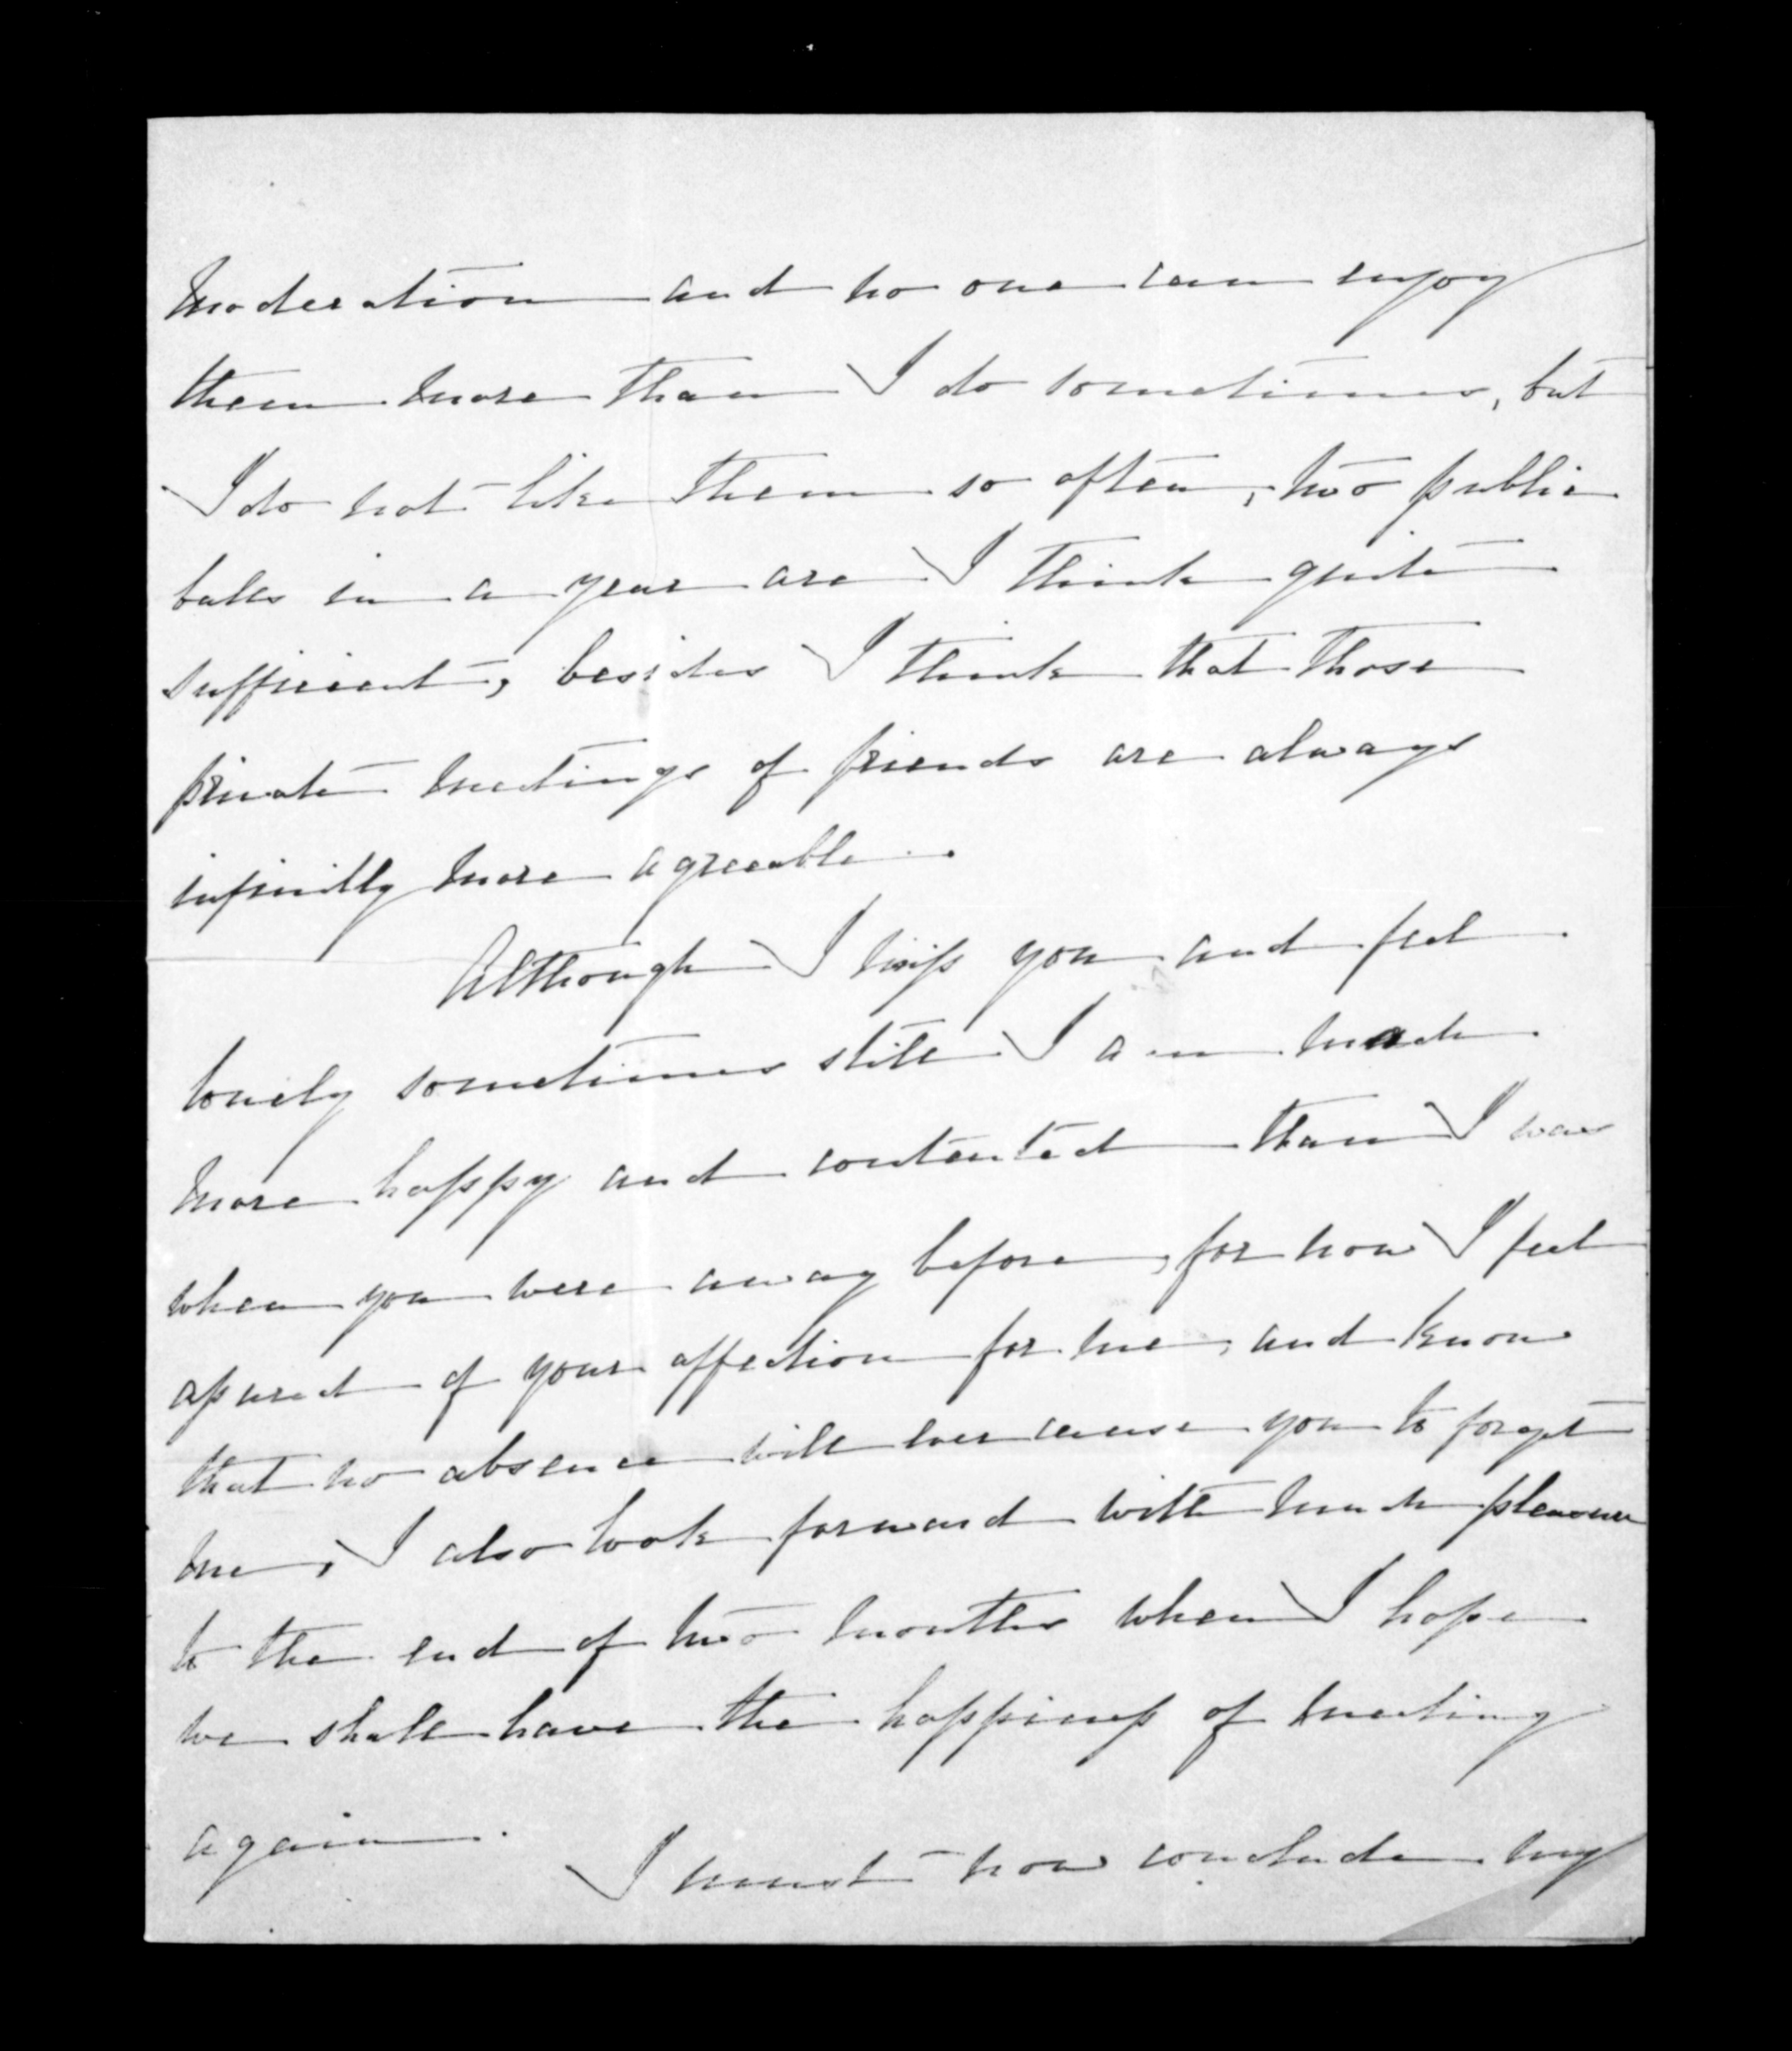 moderation and no one can enjoy
them more than I do sometimes, but
I do not like them so often, two public
balls in a year are I think quite
sufficient, besides I think that those
private meetings of friends are always
infinitly more agreeable.
Although I miss you and feel
lonely sometimes still I am much
more happy and contented than I was
when you were away before, for now I feel
assured of your affection for me, and know
that no absence will ever cause you to forget
me, I also look forward with much pleasure
to the end of two months when I hope
we shall have the happiness of meeting
again.
I must now conclude my